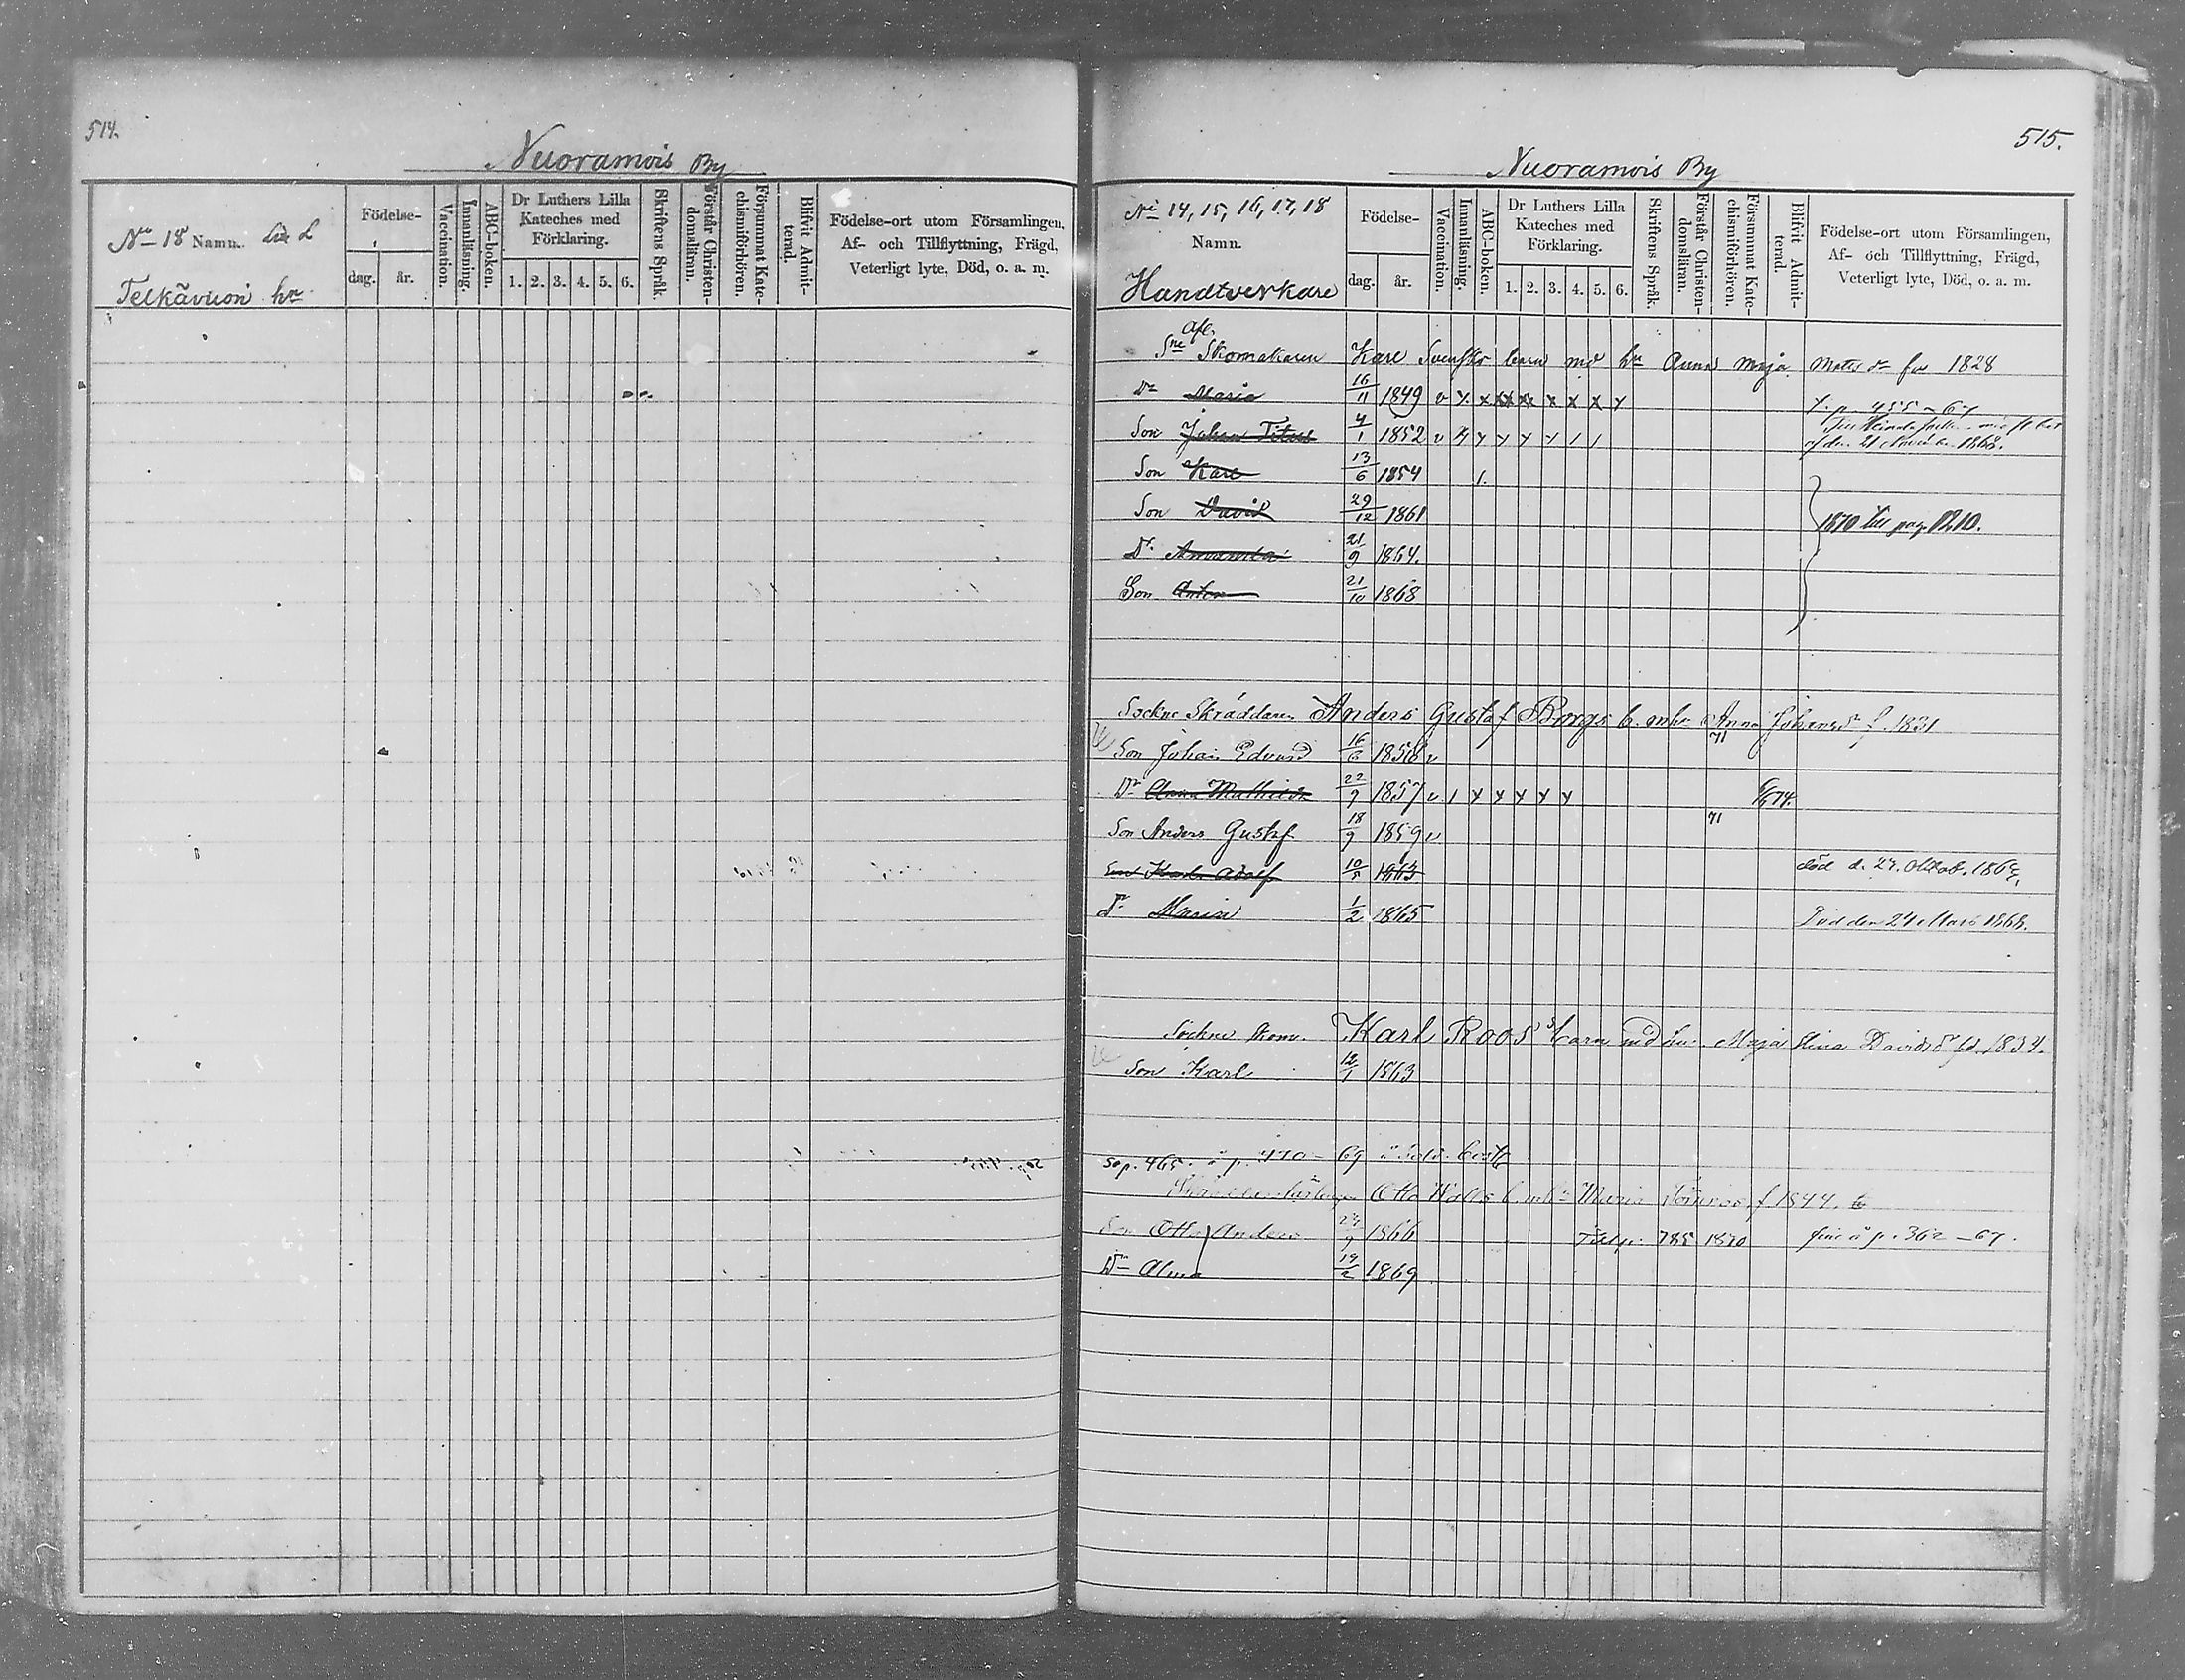 514.
Nuoramois By
No 18 Namn. Litt L
Telkävuori hn
Födelse-
dag. år.
Vaccination.
Innanläsning.
ABC-boken.
Dr Luthers Lilla Kateches med Förklaring.
1. 2. 3. 4. 5. 6.
Skriftens Språk.
Förstår Christen-domsläran.
Försummat Kate-chismiförhören.
Blifvit Admit-terad.
Födelse-ort utom Församlingen,
Af- och Tillflyttning, Frägd,
Veterligt lyte, Död, o. a. m.
515.
Nuoramois By
No 14, 15, 16, 17, 18
Namn.
Handtverkare
Födelse-
dag. år.
Vaccination.
Innanläsning.
ABC-boken.
Dr Luthers Lilla Kateches med Förklaring.
1. 2. 3. 4. 5. 6.
Skriftens Språk.
Förstår Christen-domsläran.
Försummat Kate-chismiförhören.
Blifvit Admit-terad.
Födelse-ort utom Församlingen,
Af- och Tillflyttning, Frägd,
Veterligt lyte, Död, o. a. m.
afl.
Sne Skomakaren Karl Svensks barn md hu Anna Maja Matts dr 1828
Dr Maria 16/11 1849 v x x x x x x x x
p. 455 - 67
Son Johan Titus 4/1 1852 v
d. 21 November 1868.
Son Karl 13/6 1854 1.
Son David 29/12 1861
1870 till pag. 1210.
Dr Amanda 21/9 1864.
Son Anton 21/10 1868
Sockne Skräddaren Anders Gustaf Borgs b. m hu Anna Johansdr f. 1831
71
Son Johan Edvard 16/6 1856 v
Dr Anna Mathilda 22/9 1857 v
Son Anders Gustaf 18/9 1859 v 71
Son Karl Adolf 10/5 1863 död d. 27. Oktob. 1865.
Dr Maria 1/2 1865 Död den 24 Mars 1868.
Sockne Skom. Karl Roos' barn md hu. Maja Stina Davidsdr fd 1834.
Son Karl 12/1 1863
So p. 465.
Otto Walls b. m hu Maria f 1844.
Son Otto Anders 1866 Till p. 785 1870 p. 362 - 67.
Dr Alma 19/2 1869